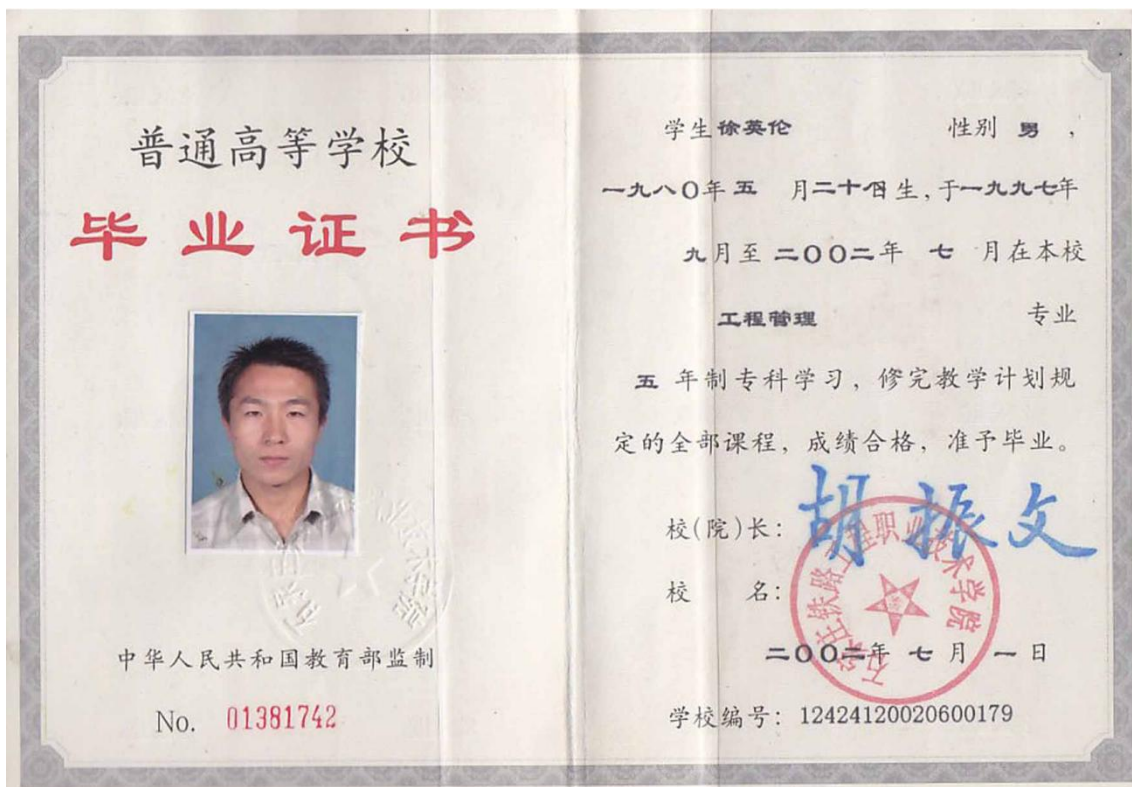 普通高等学校
毕业证书
中华人民共和国教育部监制
No. 01381742
学生徐英伦 性别 男 ,
一九八〇年五 月二十 日生,于一九九七年
九月至二〇〇二年 七 月在本校
工程管理 专业
五 年制专科学习,修完教学计划规
定的全部课程,成绩合格,准予毕业。
校(院)长: 胡振文
校 名:
石家庄铁路工程职业技术学院
二〇〇二年 七 月 一 日
学校编号: 12424120020600179